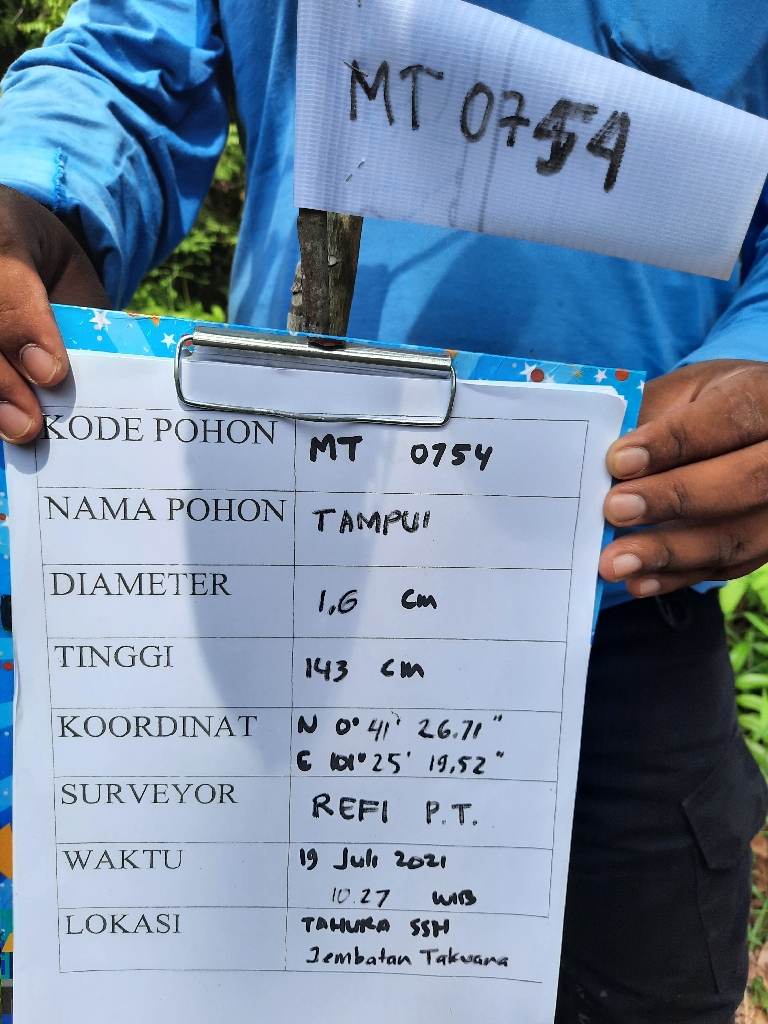 MT 0754
KODE POHON MT 0754
NAMA POHON TAMPUI
DIAMETER 1,6 cm
TINGGI 143 cm
KOORDINAT N 0° 41' 26.71"
E 101° 25' 19,52"
SURVEYOR REFI P.T.
WAKTU 19 Juli 2021
10.27 WIB
LOKASI TAHURA SSH
Jembatan Takuana